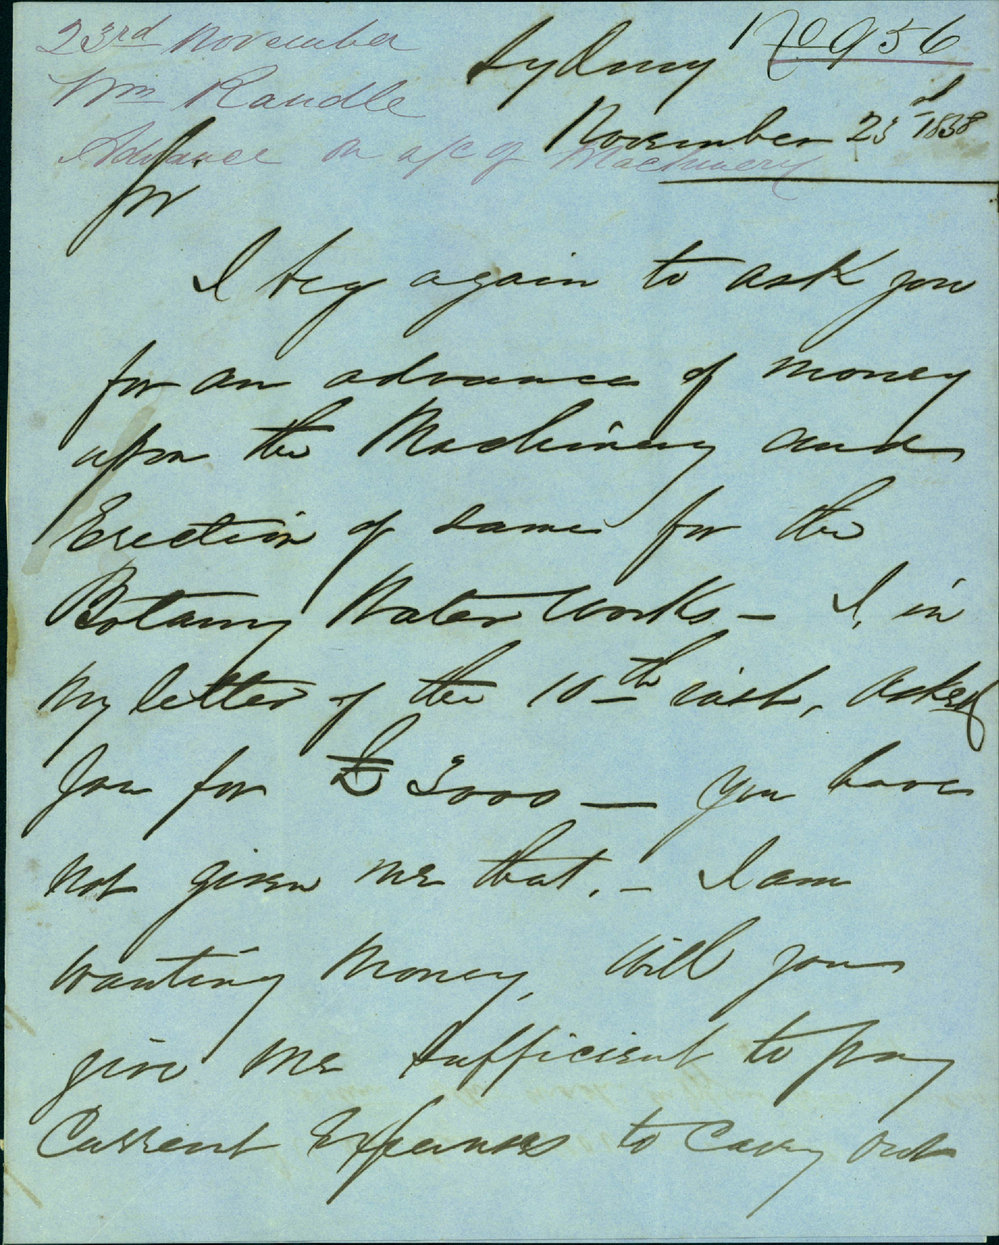 23rd November
Wm Randle
Advance on a/c of Machinery
No 956
Sydney
November 23rd 1858
Sir
I beg again to ask you
for an advance of money
upon the Machinery and
Erection of same for the
Botany Water Works – I, in
my letter of the 10th inst, asked
you for £3000 – you have
not given me that. – I am
wanting money, will you
give me sufficient to pay
Current Expenses to carry out